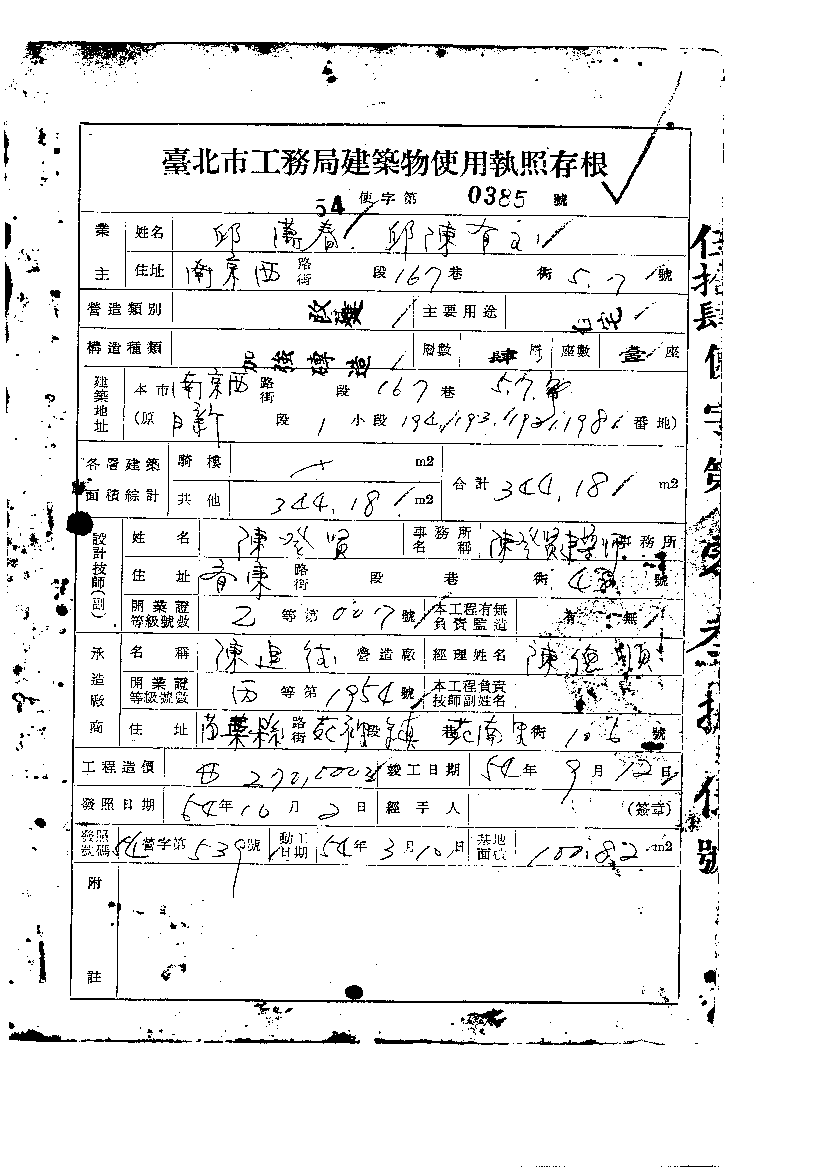 臺北市工務局建築物使用執照存根
54 使字第 0385 號
業主 姓名 邱 春 邱陳有
住址 南京西 路街 段 167 巷 街 5.7 號
營造類別 改建 主要用途 住宅
構造種類 加強磚造 層數 肆 層 座數 壹 座
建築地址 本市 南京西 路街 段 167 巷 5.7 號
(原 日新 段 1 小段 194/193/192/198 番地)
各層建築面積綜計 騎樓 m2 合計 344.18 m2
其他 344.18 m2
設計技師(副) 姓名 陳登賢 事務所名稱 陳登賢建築師事務所
住址 路街 段 巷 街 號
開業證等級號數 乙 等第 007 號 本工程有無負責監造 有 無
承造廠商 名稱 陳建 營造廠 經理姓名 陳德顯
開業證等級號數 丙 等第 1954 號 本工程負責技師副姓名
住址 苗栗縣 路街 苑裡 段 鎮 巷 苑南里 街 106 號
工程造價 竣工日期 54 年 9 月 12 日
發照日期 54 年 10 月 2 日 經手人 (簽章)
發照號碼 54 營字第 539 號 動工日期 54 年 3 月 10 日 基地面積 100.82 m2
附註
伍拾肆使字第 叁 捌伍號